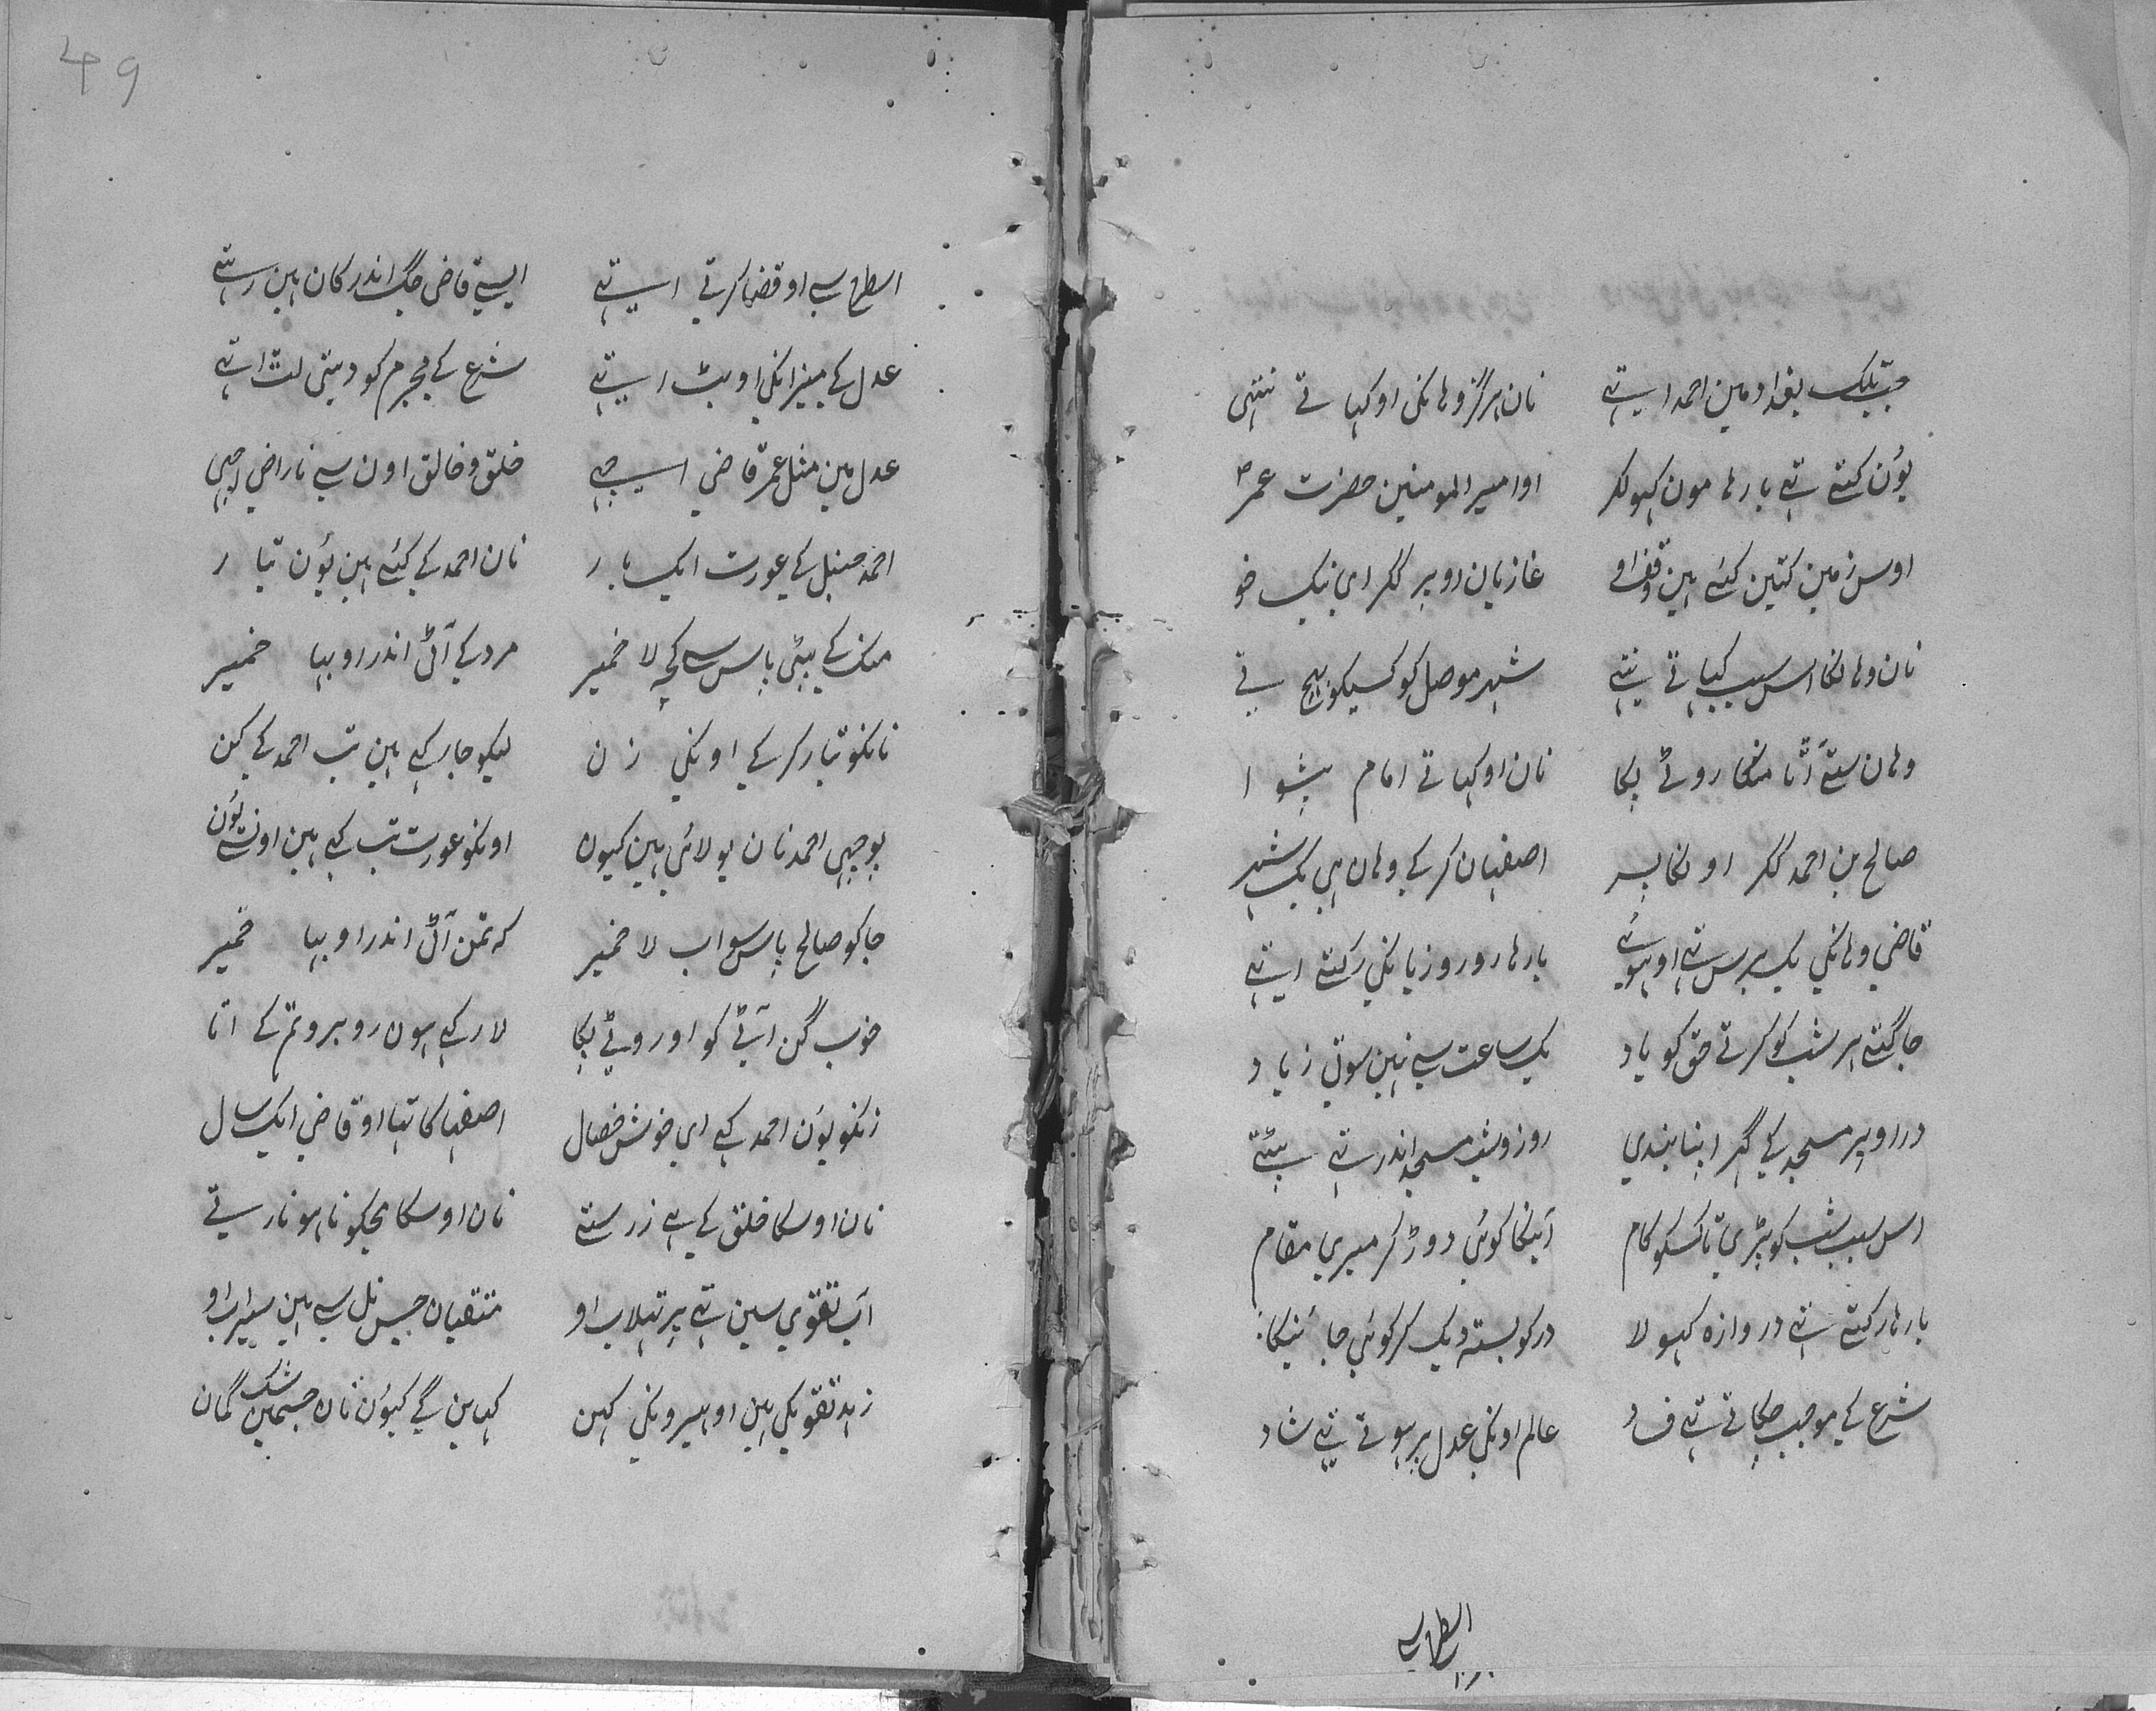 جب تلک بغداد مین احمد اسیتے نان ہرگز وہانکی او کہاتے ننتہی
یوُن کتے تہے بارہا مون کہولکر اوامیر المومنین حضرت عمر
اوس زمین کتین کئے ہین وقف او غازیان اوپر لکر ای نیک خو
نان وہانکا اس سبب کہاتے نتہے شہر موصل کو کسیکو بہیج تے
وہان ستے آتا منگا روتے پکا نان او کہاتے امام پیشوا
صالح بن احمد لکر اونکا پسر اصفہان کرکے وہان ہی یک شہر
قاضی وہانکی یک برس تہے او ہوئے بارہا روروزیانکی رکتے ایتہے
جاگتے ہر شب کو کرتے حق کو یاد یک ساعت سے نہین سوتی زیاد
در اوپر مسجد کے گہر اپنا بندی روز و شب مسجد اندر تہے بیٹتے
اس سبب شب کو پڑی تا کسکو کام آئیگا کوئی دوڑ کر میری مقام
بارہا رکتے تہے دروازہ کہولا در کو بستہ دیک کر کوئی جائیگا
شرع کے موجب چکاتے تہے فساد عالم اونکی عدل پر ہوتے تہے شاد
اسطرح سے
49
اسطرح سے او قضا کرتے اسیتے ایسے قاضی جگ اندر کان ہین رستے
عدل کے میزانکی او بٹ اسیتے شرع کے مجرم کو دیتی لت اتہے
عدل مین مثل عمر قاضی اسچہے خلق و خالق اون سے ناراضی اچہی
احمد حنبل کے عورت ایک بار نان احمد کے کئے ہین یوُن تیار
منک کے بیٹی پاس سے کچہ لا خمیر مرد کے آٹی اندر او بہا خمیر
نانکو تیار کرکے اونکی زن لیکو جا رکہے ہین تب احمد کے کن
پوچہی احمد نان یو لائی ہین کیون اونکو عورت تب کہے ہین اونستے یوُن
جاکو صالح پاس سے اب لا خمیر کہ تمن آٹی اندر او بہا خمیر
خوب گن آٹے کو او روٹے پکا لا رکہے ہون روبرو تم کے اتا
زنکو یوُن احمد کہے ای خوش خصال اصفہا کا تہا او قاضی ایک سال
نان اوسکا خلق کے ہے زر ستے نان اوسکا مجکو نا ہونا رستے
آب تقوی سین تہے پر تہلاب او متقیان جس نل سے ہین سیراب او
زہد تقویکی ہین او ہیرونکی کہن کہاین گے کیوُن نان جسمین شک گمان